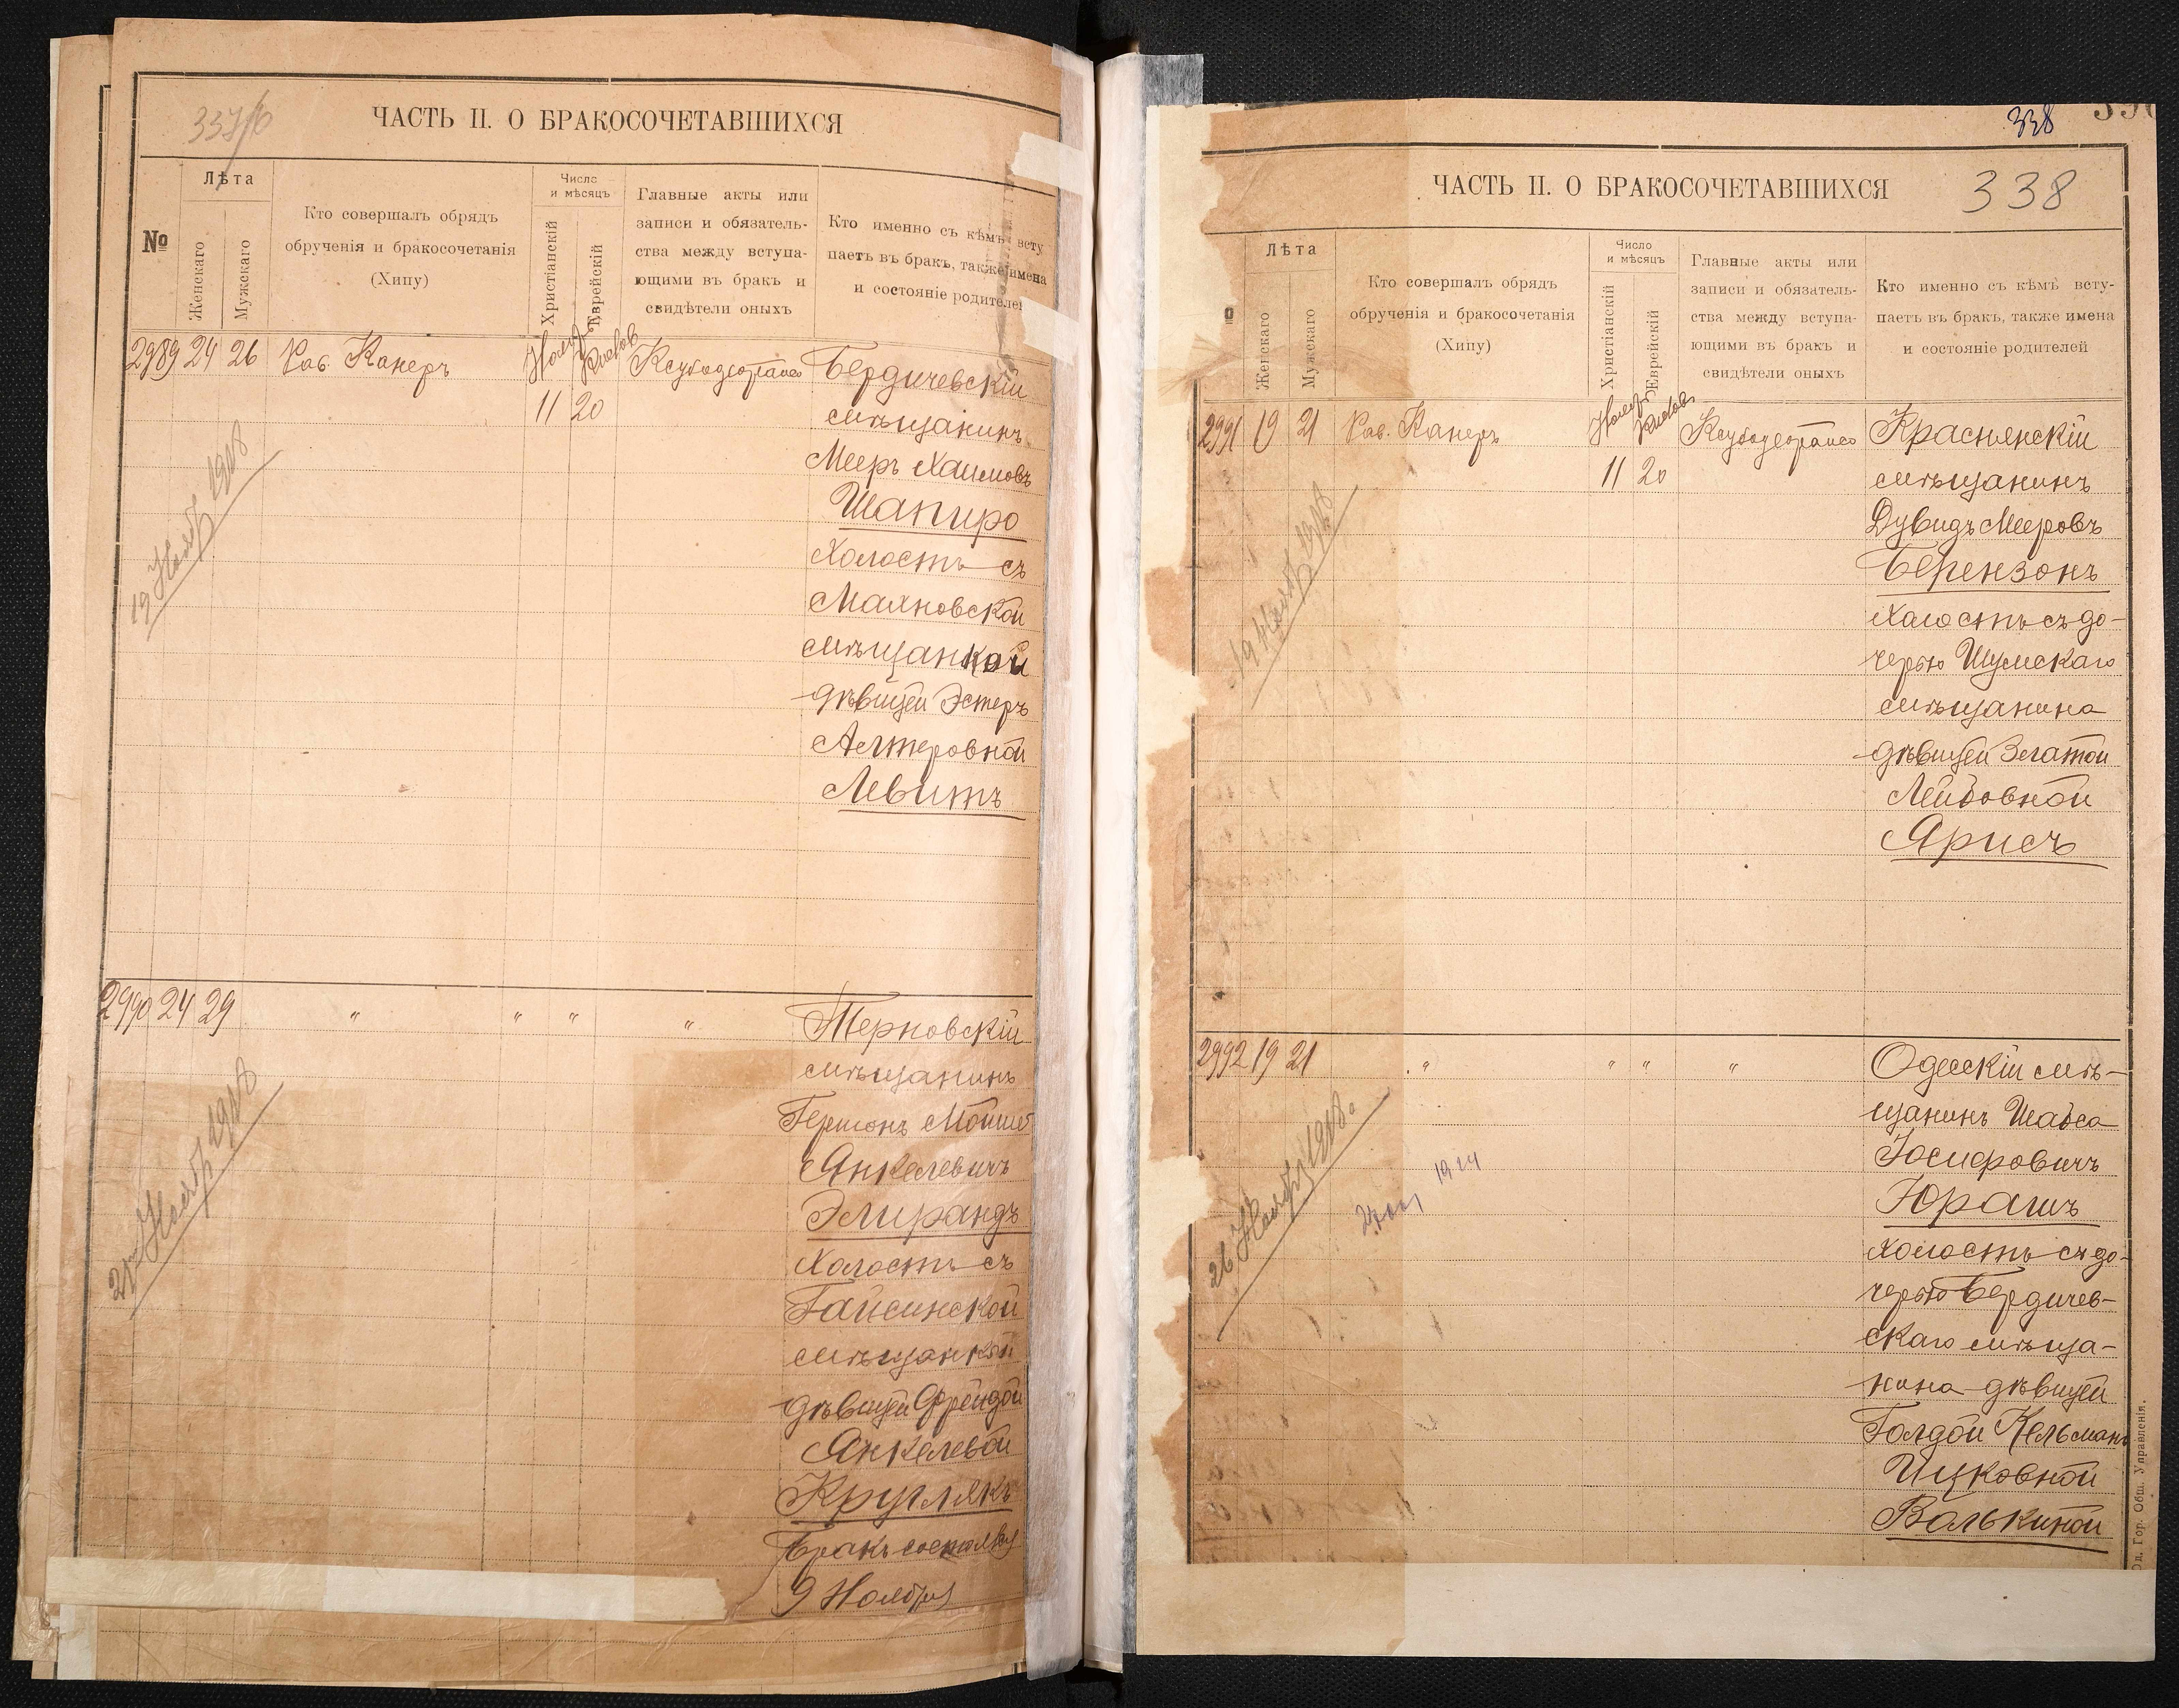 ЧАСТЬ II. О БРАКОСОЧЕТАВШИХСЯ
№
Лѣта
Женскаго
Мужскаго
Кто совершалъ обрядъ
обрученія и бракосочетанія
(Хипу)
Число
и мѣсяцъ
Христіанскій
Еврейскій
Главные акты или
записи и обязатель-
ства между вступа-
ющими въ бракъ и
свидѣтели оныхъ
Кто именно съ кѣмъ всту
паетъ въ бракъ, также имена
и состояніе родителей
2989 24 26 Рав. Канеръ
11 20
Бердичевскій
мѣщанинъ
Мееръ Хаимовъ
Шапиро
холостъ съ
Маяновской
мѣщанкой
дѣвицей Эстеръ
Алтеровной
Левитъ
19 Ноябр 1918
2990 24 29 " " " "
Терновскій
мѣщанинъ
Гершонъ Мойше
Анкелевичъ
холостъ съ
Гайсинской
мѣщанкой
дѣвицей Фрейдой
Анкелевой
Круглякъ
Бракъ состоялся
9 Ноября
Ноябр 1918
338
ЧАСТЬ II. О БРАКОСОЧЕТАВШИХСЯ
338
Лѣта
Женскаго
Мужскаго
Кто совершалъ обрядъ
обрученія и бракосочетанія
(Хипу)
Число
и мѣсяцъ
Христіанскій
Еврейскій
Главные акты или
записи и обязатель-
ства между вступа-
ющими въ бракъ и
свидѣтели оныхъ
Кто именно съ кѣмъ всту-
паетъ въ бракъ, также имена
и состояніе родителей
2991 19 21 Рав. Канеръ
11 20
Краснянскій
мѣщанинъ
Дувидъ Мееровъ
Берензонъ
холостъ съ до-
черью Шумскаго
мѣщанина
дѣвицей Златой
Лейбовной
Ярисъ
19 Ноябр 1918
2992 19 21 " " " "
Одесскій мѣ-
щанинъ Шабса
Іосифовичъ
Юрашъ
холостъ съ до-
черью Бердичев-
скаго мѣща-
нина дѣвицей
Голдой Кельманъ
Ицковной
Волькиной
26 Ноябр 1918.
1924
Од. Гор. Общ. Управленія.